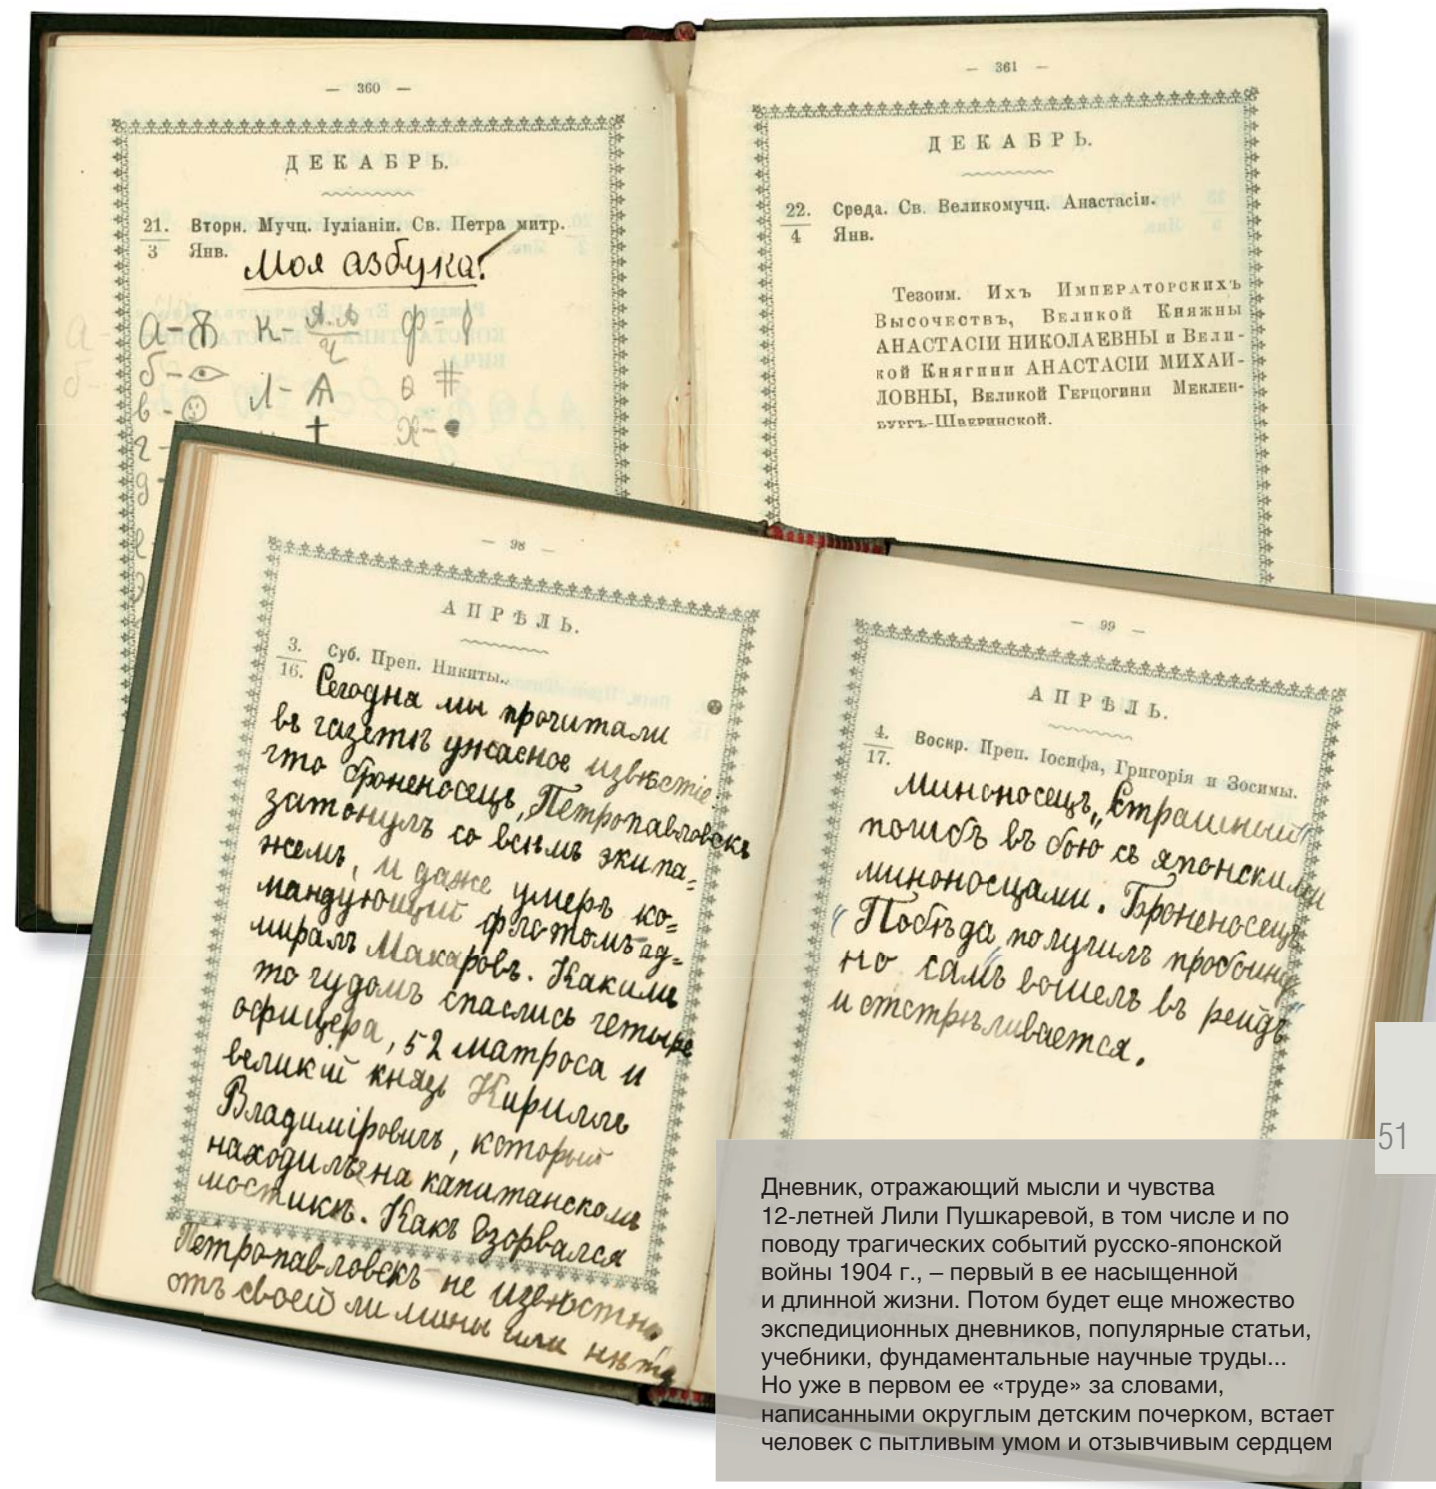 — 360 —
ДЕКАБРЬ.
21. Вторн. Мучц. Іуліаніи. Св. Петра митр.
3 Янв.
Моя азбука!
а- к- ф-
б- л- ѳ
в- х-
г-
д-
е
— 361 —
ДЕКАБРЬ.
22. Среда. Св. Великомучц. Анастасіи.
4 Янв.
Тезоим. Ихъ Императорскихъ
Высочествъ, Великой Княжны
АНАСТАСІИ НИКОЛАЕВНЫ и Вели-
кой Княгини АНАСТАСІИ МИХАИ-
ЛОВНЫ, Великой Герцогини Меклен-
бургъ-Шверинской.
— 98 —
АПРѢЛЬ.
3. Суб. Преп. Никиты.
16.
Сегодна мы прочитали
въ газетѣ ужасное извѣстіе
что броненосецъ „Петропавловскъ
затонулъ со всѣмъ экипа=
жемъ, и даже умеръ ко=
мандующій флотомъ ад=
миралъ Макаровъ. Какимъ
то чудомъ спаслись четыре
офицера, 52 матроса и
великій князь Кириллъ
Владиміровичъ, который
находилъ на капитанскомъ
мостикѣ. Какъ взорвался
Петро-павловскъ не извѣстно
отъ своей ли мины или нѣтъ
— 99 —
АПРѢЛЬ.
4. Воскр. Преп. Іосифа, Григорія и Зосимы.
17.
Миноносецъ „Страшный“
погибъ въ бою съ японскими
миноносцами. Броненосецъ
„Побѣда“ получилъ пробоину
но самъ вошелъ въ рейдъ
и отстрѣливается.
51
Дневник, отражающий мысли и чувства
12-летней Лили Пушкаревой, в том числе и по
поводу трагических событий русско-японской
войны 1904 г., – первый в ее насыщенной
и длинной жизни. Потом будет еще множество
экспедиционных дневников, популярные статьи,
учебники, фундаментальные научные труды...
Но уже в первом ее «труде» за словами,
написанными округлым детским почерком, встает
человек с пытливым умом и отзывчивым сердцем